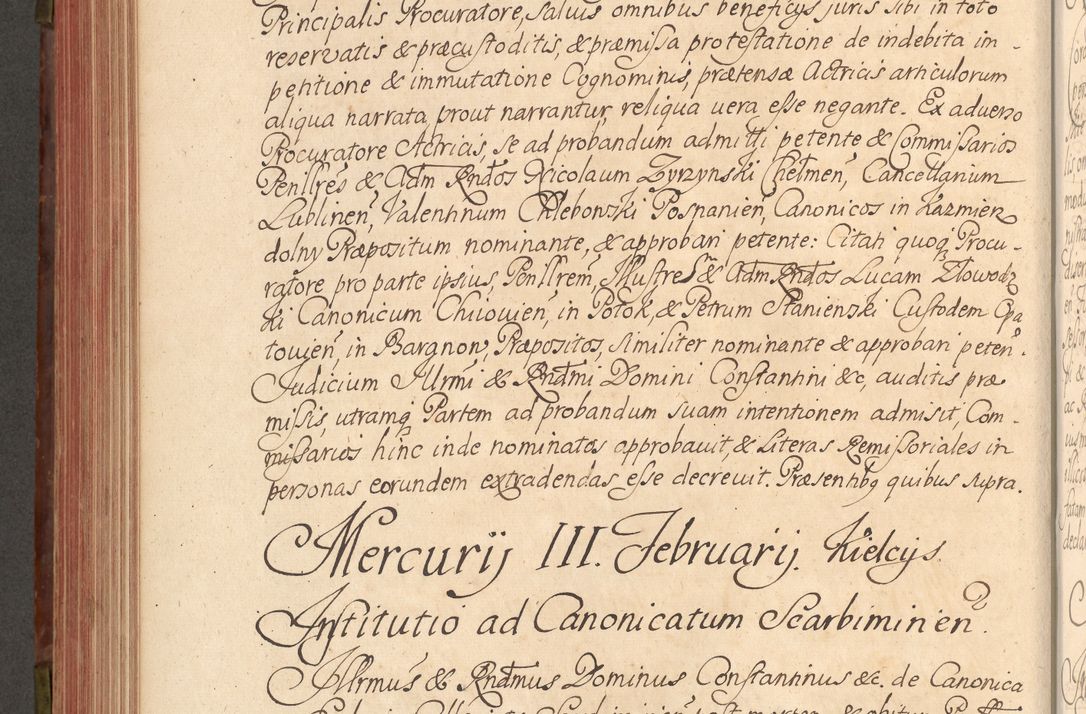 Principalis Procuratore, salvis omnibus beneficys juris sibi in toto
reservatis & præcustoditis, & præmissa protestatione de indebita im-
petitione & immutatione Cognominis, prætensæ Actricis articulorum
aliqua narrata, prout narrantur, reliqua uera esse negante. Ex aduerso
Procuratore Actricis, se ad probandum admitti petente & Commissarios
Penllres & Adm Rndos Nicolaum Zyrzynski Chelmen, Cancellarium
Lublinen, Valentinum Chlebowski Posnanien, Canonicos in Kazmierz
dolny Præpositum nominante, & approbari petente: Citati quoq Procu-
ratore pro parte ipsius, Penllrem, Illustres & Adm Rndos Lucam Złowodz
ki Canonicum Chiiovien, in Potok, & Petrum Stanienski Custodem Opa
toujen, in Bargnon, Præpositos, similiter nominante & approbari peten.
Judicium Illrmi & Rndmi Domini Constantini &c, auditis præ
missis, utramq Partem ad probandum suam intentionem admisit, Com-
missarios hinc inde nominatos approbauit, & Literas Remissoriales in
personas eorundem extradendas esse decreuit. Præsentibq quibus supra.
Mercurij III. Februarij. Kielcijs.
Institutio ad Canonicatum Scarbiminen.
Illrmus & Rndmus Dominus Constantinus &c. de Canonica